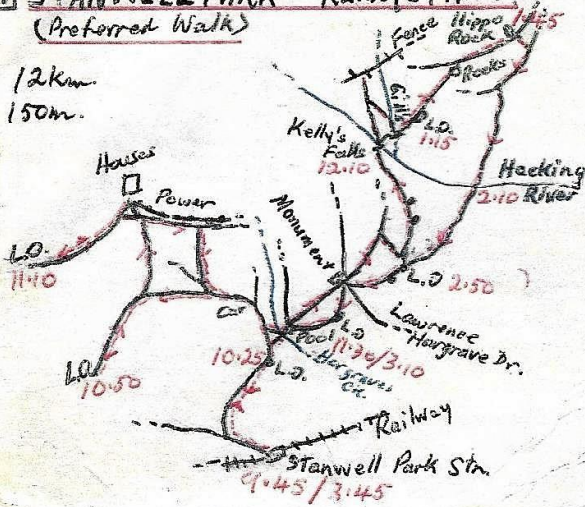 STANWELL PARK
(Preferred Walk)
12km.
150m.
Hippo
Rock
1.45
Fence
Rocks
Gills
L.O.
1.15
Kelly's
Falls
12.10
Hacking
River
2.10
Houses
Power
Monument
L.O.
11.10
L.O. 2.50
Lawrence
Hargrave Dr.
Pool
L.O.
11.30/3.10
Hargraves
Ck.
10.25
L.O.
L.O.
10.50
Railway
Stanwell Park Stn.
9.45/3.45